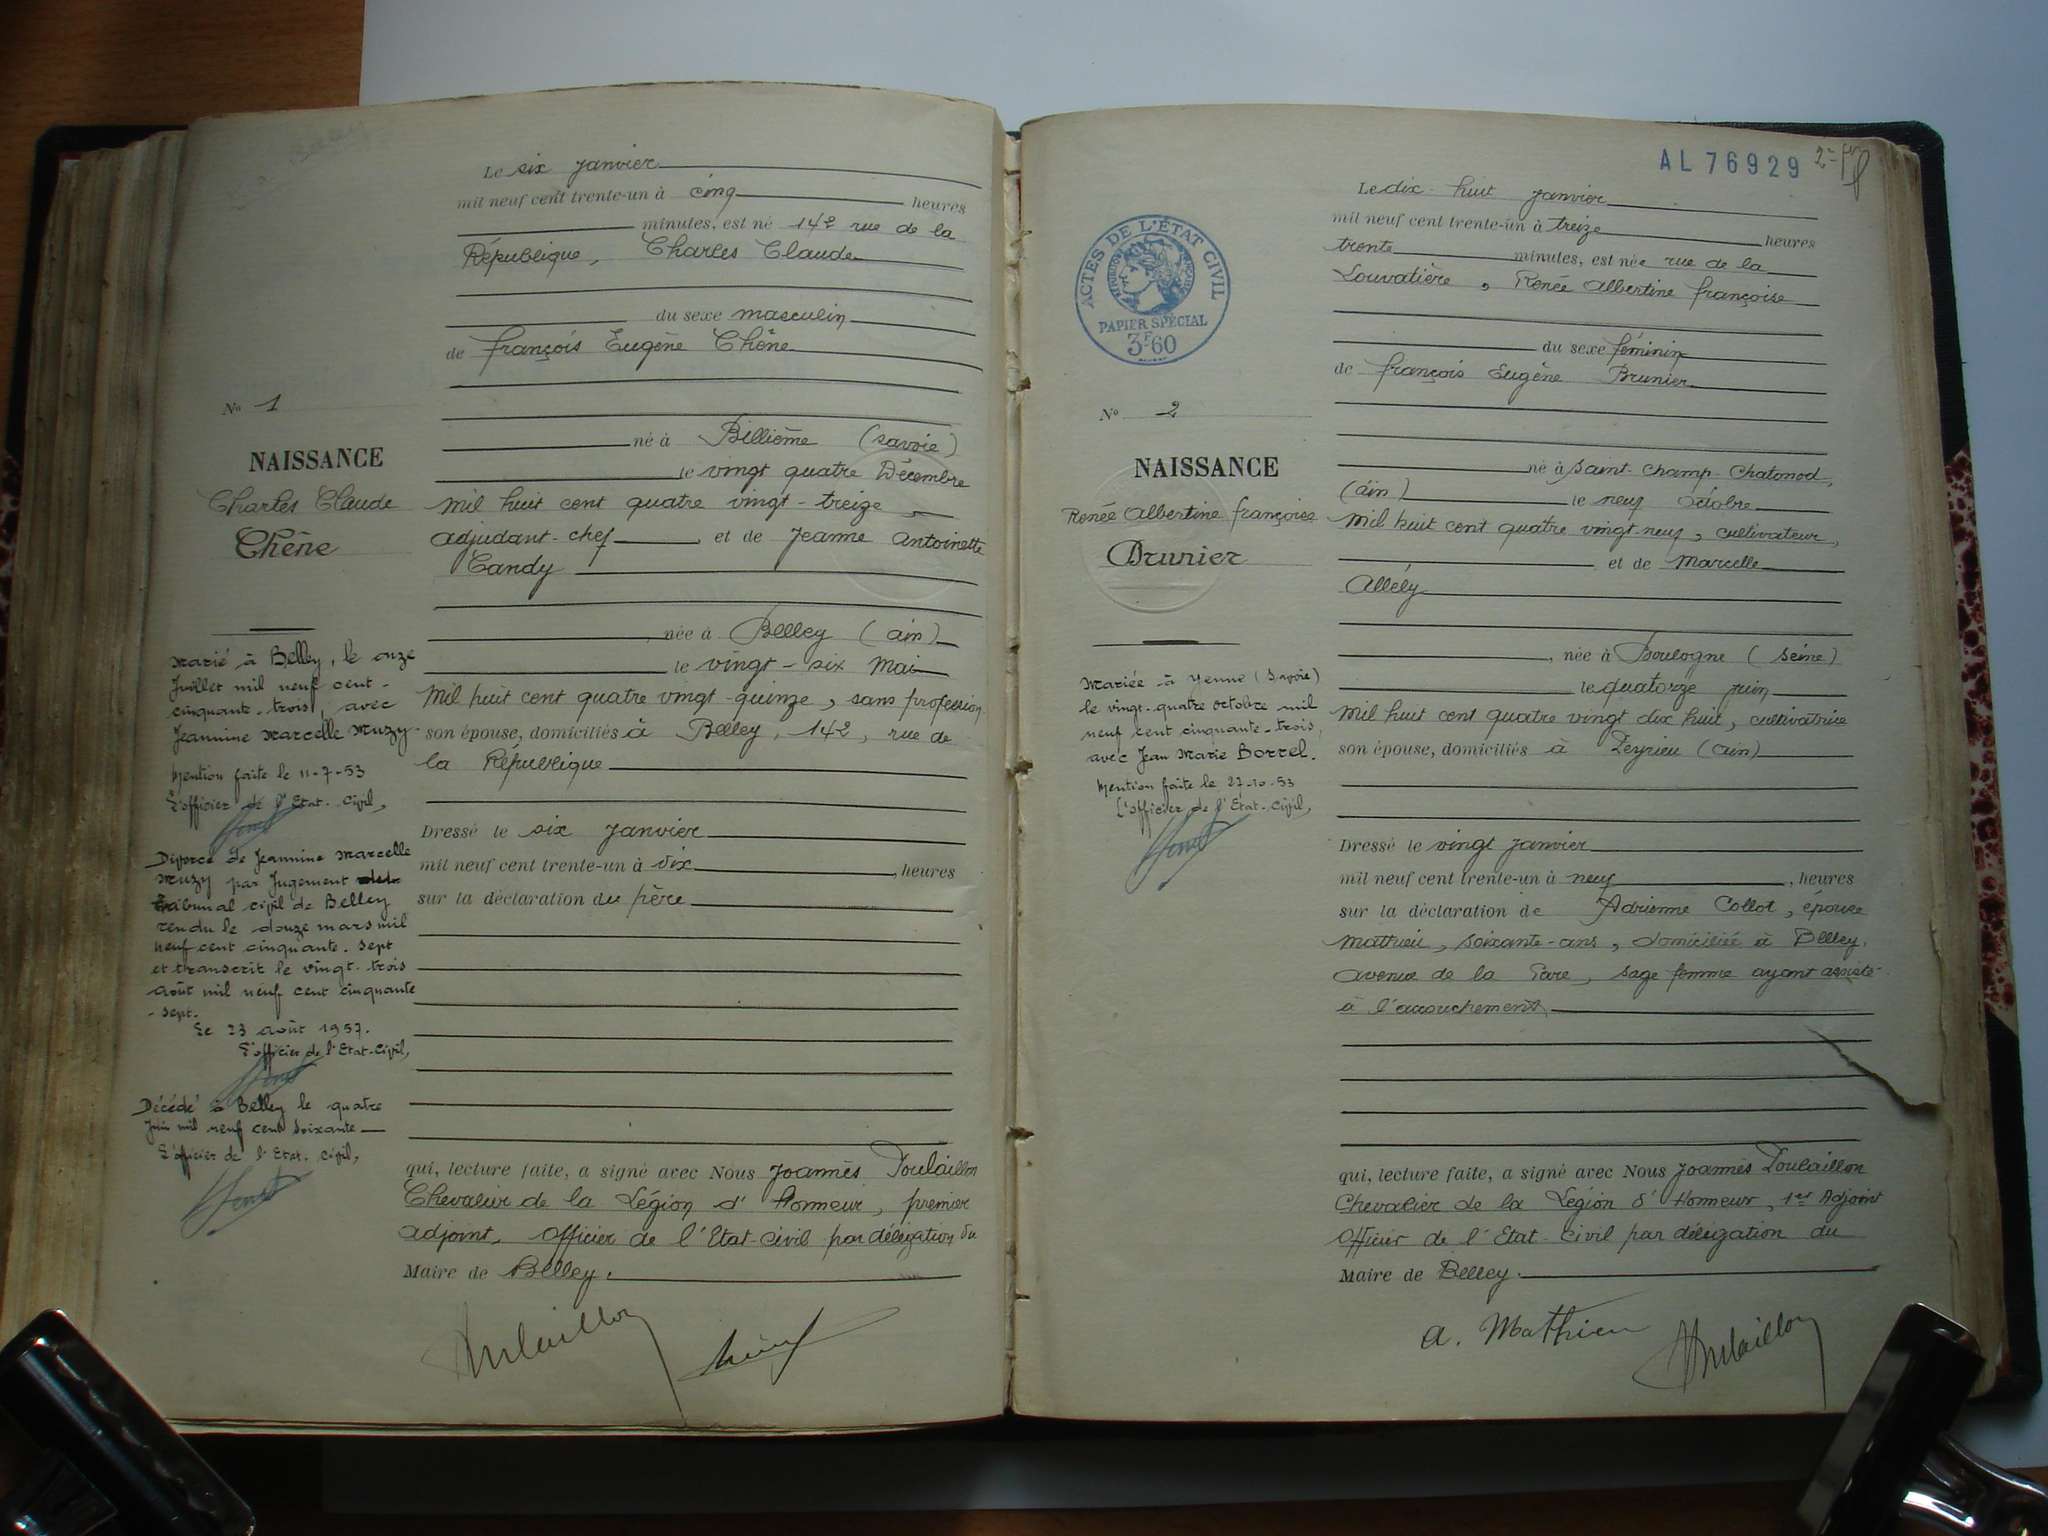 Le six Janvier
mil neuf cent trente-un à cinq heures
minutes, est né 142 rue de la
République, Charles Claude
du sexe masculin
de François Eugène Chêne
né à Billième (Savoie)
le vingt quatre Décembre
mil huit cent quatre vingt-treize,
adjudant-chef et de Jeanne Antoinette
Candy
née à Belley (ain)
le vingt-six Mai
mil huit cent quatre vingt-quinze, sans profession
son épouse, domiciliés à Belley, 142, rue de
la République
Dressé le six Janvier
mil neuf cent trente-un à dix heures
sur la déclaration du père
qui, lecture faite, a signé avec Nous Joannès Poulaillon
Chevalier de la Légion d'Honneur, premier
adjoint, Officier de l'Etat-Civil par délégation du
Maire de Belley.
Poulaillon
No 1
NAISSANCE
Charles Claude
Chêne
Marié à Belley, le onze
Juillet mil neuf cent-
cinquante-trois, avec
Jeannine Marcelle Muzy
Mention faite le 11-7-53
L'officier de l'Etat-civil,
Divorcé de Jeannine Marcelle
Muzy par Jugement
tribunal civil de Belley
rendu le douze mars mil
neuf cent cinquante-sept
et transcrit le vingt-trois
août mil neuf cent cinquante
-sept.
Le 23 août 1957.
L'officier de l'Etat-civil,
Décédé à Belley le quatre
mil neuf cent soixante
L'officier de l'Etat-civil,
AL 76929
ACTES DE L'ÉTAT CIVIL
PAPIER SPÉCIAL
3F60
Le dix-huit Janvier
mil neuf cent trente-un à treize heures
trente minutes, est née rue de la
Louvatière, Renée Albertine Françoise
du sexe féminin
de François Eugène Brunier
né à Saint-Champ-Chatonod,
(ain) le neuf Octobre
mil huit cent quatre vingt-neuf, cultivateur,
et de Marcelle
Allély
née à Boulogne (Seine)
le quatorze juin
mil huit cent quatre vingt dix huit, cultivatrice
son épouse, domiciliés à Peyrieu (ain)
Dressé le vingt Janvier
mil neuf cent trente-un à neuf, heures
sur la déclaration de Adrienne Collot, épouse
Mathieu, soixante-ans, domiciliée à Belley,
avenue de la Gare, sage femme ayant assisté
à l'accouchement
qui, lecture faite, a signé avec Nous Joannès Poulaillon
Chevalier de la Légion d'Honneur, 1er Adjoint
Officier de l'Etat-Civil par délégation du
Maire de Belley.
A. Mathieu
Poulaillon
No 2
NAISSANCE
Renée Albertine Françoise
Brunier
Mariée à Yenne (Savoie)
le vingt-quatre octobre mil
neuf cent cinquante-trois,
avec Jean Marie Borrel.
Mention faite le 27-10-53
L'officier de l'Etat-civil,